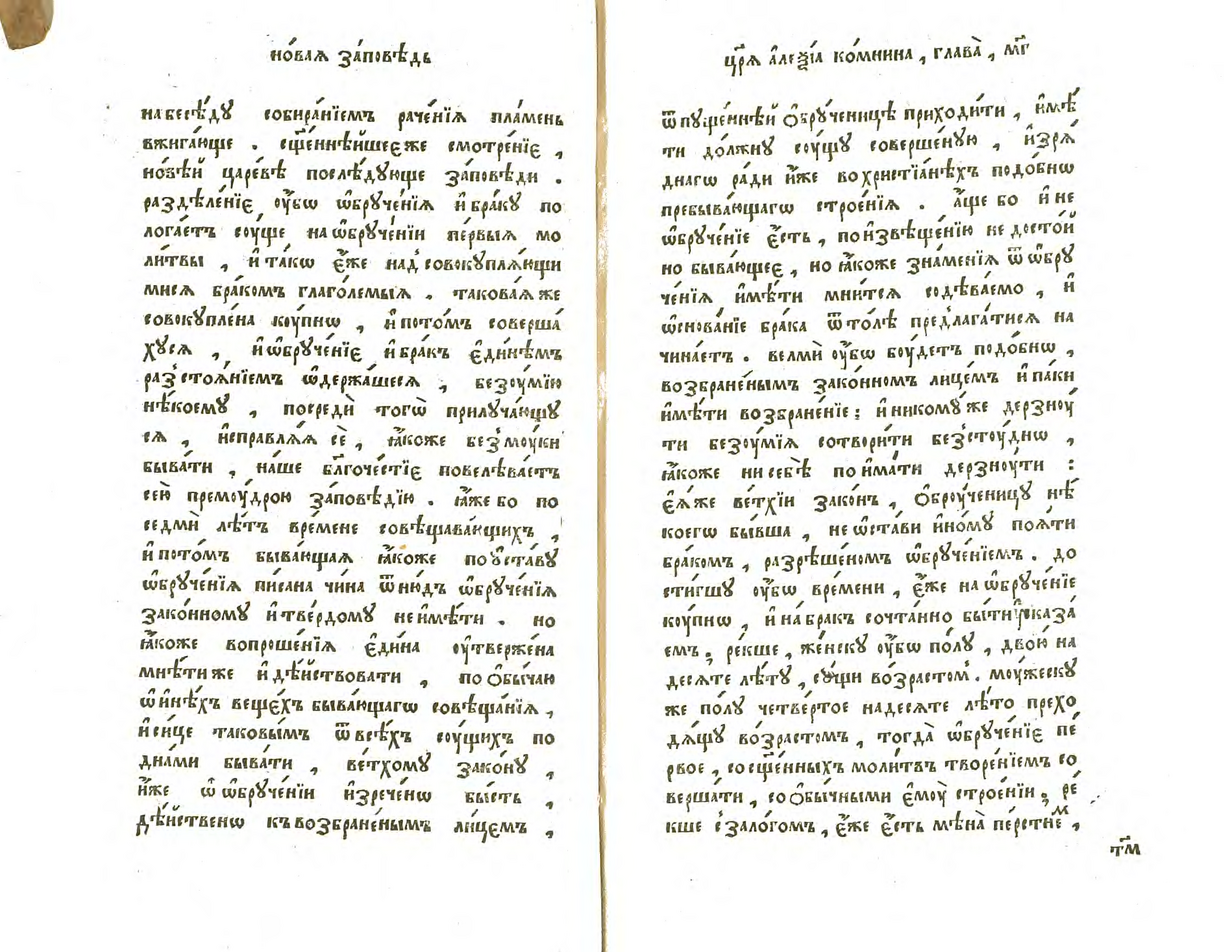 но́ваѧ за́повѣдь
набесѣ́дꙋ собира́нїемъ раче́нїѧ пла́мень
вжига́юще . сщ҃е́ннѣйшеє же смотре́нїє ,
но́вѣй царе́вѣ послѣ́дꙋюще за́повѣди .
раздѣле́нїє ᲂу҆́бѡ ѡ҆брꙋче́нїѧ и҆ бра́кꙋ по
лога́етъ сᲂу́ще на ѡ҆брꙋче́нїи пе́рвыѧ мо
ли́твы , и҆ та́кѡ є҆́же над̾ совокꙋплѧ́ющи
мисѧ бра́комъ глаго́лемыѧ . такова́ѧ же
совокꙋпле́на кᲂу́пнѡ , и҆ пото́мъ соверша́
хꙋсѧ , и҆ ѡ҆брꙋче́нїє и҆ бра́къ є҆ди́нѣмъ
раз̾стоѧ́нїемъ ѡ҆держа́шесѧ , безᲂу́мїю
нѣ́коемꙋ , посредѝ тогѡ̀ прилꙋча́ющꙋ
сѧ , и҆справлѧ́ѧ сѐ , ꙗ҆́коже без̾ мᲂу́ки
быва́ти , на́ше бл҃гоче́стїє повелѣва́етъ
се́ю премᲂу́дрою за́повѣдїю . ꙗ҆́же бо по
седмѝ лѣ́тъ вре́мене совѣщава́ющихъ ,
и҆ пото́мъ быва́ющаѧ ꙗ҆́коже по ᲂу҆ста́вꙋ
ѡ҆брꙋче́нїѧ пи́сана чи́на ѿню́дъ ѡ҆брꙋче́нїѧ
зако́нномꙋ и҆ тве́рдомꙋ не и҆мѣ́ти . но
ꙗ҆́коже вопроше́нїѧ є҆ди́на ᲂу҆тверже́на
мнѣ́ти же и҆ дѣ́йствовати , по ѻ҆бы́чаю
ѡ҆ и҆нѣ́хъ веще́хъ быва́ющагѡ совѣща́нїѧ ,
и҆ си́це таковы́мъ ѿ всѣ́хъ сᲂу́щихъ по
дна́ми быва́ти , ве́тхомꙋ зако́нꙋ ,
и҆́же ѡ҆ ѡ҆брꙋче́нїи и҆зрече́нѡ бы́сть ,
дѣ́йственѡ къ возбране́нымъ ли́цемъ ,
цр҃ѧ̀ а҆леѯі́а комнина , глава̀ , мг҃
ѿпꙋще́ннѣй ѻ҆брꙋ́ченицѣ приходи́ти , и҆мѣ́
ти до́лжнꙋ сᲂу́щꙋ соверше́нꙋю , и҆зрѧ́
днагѡ ра́ди и҆́же во христїа́нѣхъ подо́бнѡ
пребыва́ющагѡ строе́нїѧ . а҆́ще бо и҆ не
ѡ҆брꙋче́нїе є҆́сть , по и҆звѣще́нїю не досто́й
но быва́ющеє , но ꙗ҆́коже зна́менїѧ ѿ ѡ҆брꙋ
че́нїѧ и҆мѣ́ти мни́тсѧ содѣ́ваемо , и҆
ѡ҆снова́нїе бра́ка ѿто́лѣ предлага́тисѧ на
чина́етъ . велмѝ ᲂу҆́бѡ бᲂу́детъ подо́бнѡ ,
возбране́нымъ зако́нномъ лице́мъ и҆ па́ки
и҆мѣ́ти возбране́нїе : и҆ никомꙋ́ же дерзнᲂу́
ти безᲂу́мїѧ сотвори́ти без̾стᲂу́днѡ ,
ꙗ҆́коже ни себѣ̀ пои҆ма́ти дерзнᲂу́ти :
є҆ѧ́же ве́тхїи зако́нъ , ѻ҆брᲂу́ченицꙋ нѣ́
коегѡ бы́вша , не ѡ҆ста́ви и҆но́мꙋ поѧ́ти
бра́комъ , разрѣше́номъ ѡ҆брꙋче́нїемъ . до
сти́гшꙋ ᲂу҆́бѡ вре́мени , є҆́же на ѡ҆брꙋче́нїе
кᲂу́пнѡ , и҆ на бра́къ сочта́нно бы́ти ᲂу҆каза́
емъ , ре́кше , же́нскꙋ ᲂу҆́бѡ по́лꙋ , двою̀ на
десѧте лѣ́тꙋ , сꙋ́щи во́зрастом̾ . мᲂу́жескꙋ
же по́лꙋ четве́ртое надесѧте лѣ́то прехо
дѧ́щꙋ во́зрастомъ , тогда̀ ѡ҆брꙋче́нїє пе́
рвое , со сщ҃е́нныхъ моли́твъ творе́нїемъ со
верша́ти , со ѻ҆бы́чными є҆мᲂу́ строе́нїи , ре́
кше с̾ зало́гомъ , є҆́же є҆́сть мѣ́на пе́рстнемъ ,
тѣ́м